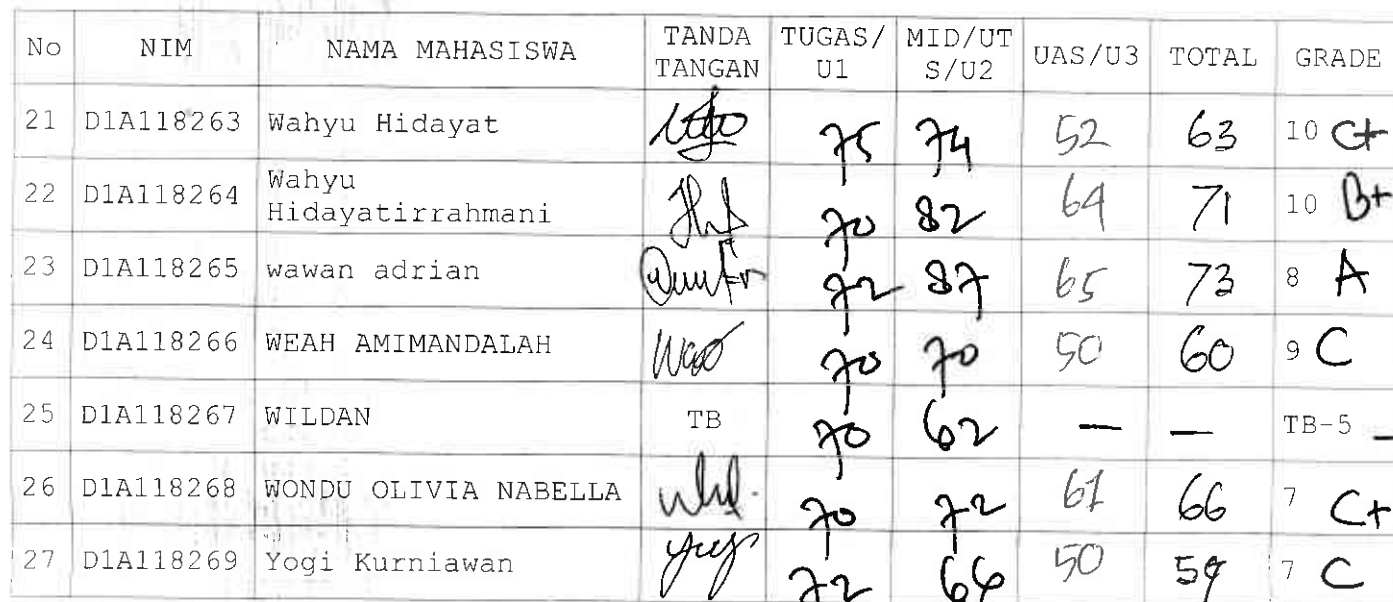 No NIM NAMA MAHASISWA TANDA TANGAN TUGAS/U1 MID/UTS/U2 UAS/U3 TOTAL GRADE
21 D1A118263 Wahyu Hidayat 75 74 52 63 10 C+
22 D1A118264 Wahyu Hidayatirrahmani 70 82 64 71 10 B+
23 D1A118265 wawan adrian 72 87 65 73 8 A
24 D1A118266 WEAH AMIMANDALAH 70 70 50 60 9 C
25 D1A118267 WILDAN TB 70 62 — — TB-5 –
26 D1A118268 WONDU OLIVIA NABELLA 70 72 61 66 7 C+
27 D1A118269 Yogi Kurniawan 72 66 50 59 7 C